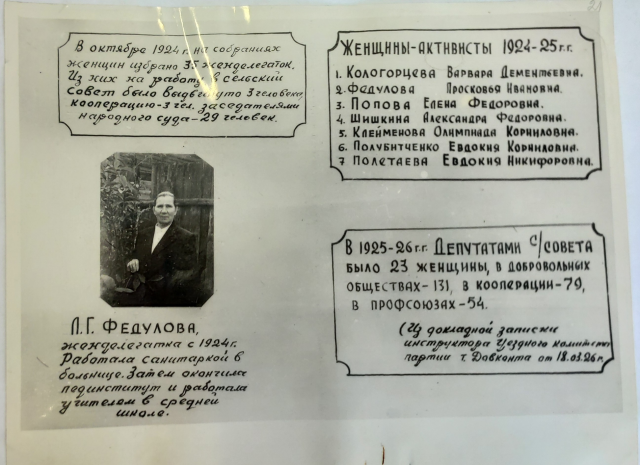 В октябре 1924г. на собраниях
женщин избрано 35 женделегаток.
Из них на работу в сельский
совет было выдвинуто 3 человека,
кооперацию-3 чел. заседателями
народного суда-29 человек.
Женщины-активисты 1924-25 г.г.
1. Кологорцева Варвара Дементьевна.
2. Федулова Просковья Ивановна.
3 Попова Елена Федоровна.
4. Шишкина Александра Федоровна.
5 Клейменова Олимпиада Корниловна.
6. Полубитченко Евдокия Корниловна.
7 Полетаева Евдокия Никифоровна.
Л.Г. Федулова,
женделегатка с 1924г.
Работала санитаркой в
больнице. Затем окончила
пединститут и работала
учителем в средней
школе.
В 1925-26 г.г. Депутатами с/совета
было 23 женщины, в добровольных
обществах-131, в кооперации-79,
в профсоюзах-54.
(Из докладной записки
инструктора Уездного комитета
партии т. Довконта от 18.03.26г.